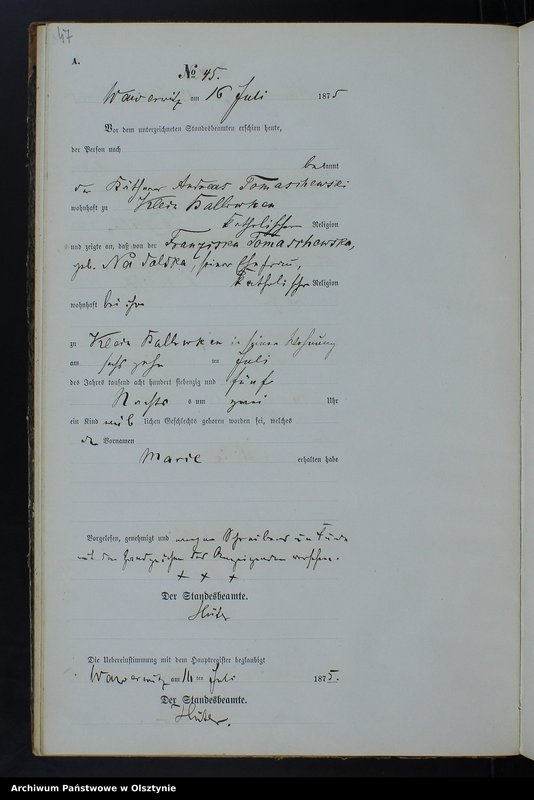 47
A.
No 45.
Wawerwitz am 16 Juli 1875
Vor dem unterzeichneten Standesbeamten erschien heute,
der Person nach
bekannt
der Käthner Andreas Tomaschewski
wohnhaft zu Klein Ballowken
katholischer Religion
und zeigte an, daß von der Franziska Tomaschewska,
geb. seiner Ehefrau,
katholischer Religion
wohnhaft bei ihm
zu Klein Ballowken in seiner Wohnung
am sechszehn ten Juli
des Jahres tausend acht hundert siebenzig und fünf
Nachts um zwei Uhr
ein Kind weiblichen Geschlechts geboren worden sei, welches
den Vornamen
Marie
erhalten habe
Vorgelesen, genehmigt und wegen Schreibens un
mit den Handzeichen des Anzeigenden versehen.
+ + +
Der Standesbeamte.
Hüter
Die Uebereinstimmung mit dem Hauptregister beglaubigt
Wawerwitz am 16 ten Juli 1875.
Der Standesbeamte.
Hüter.
Archiwum Państwowe w Olsztynie